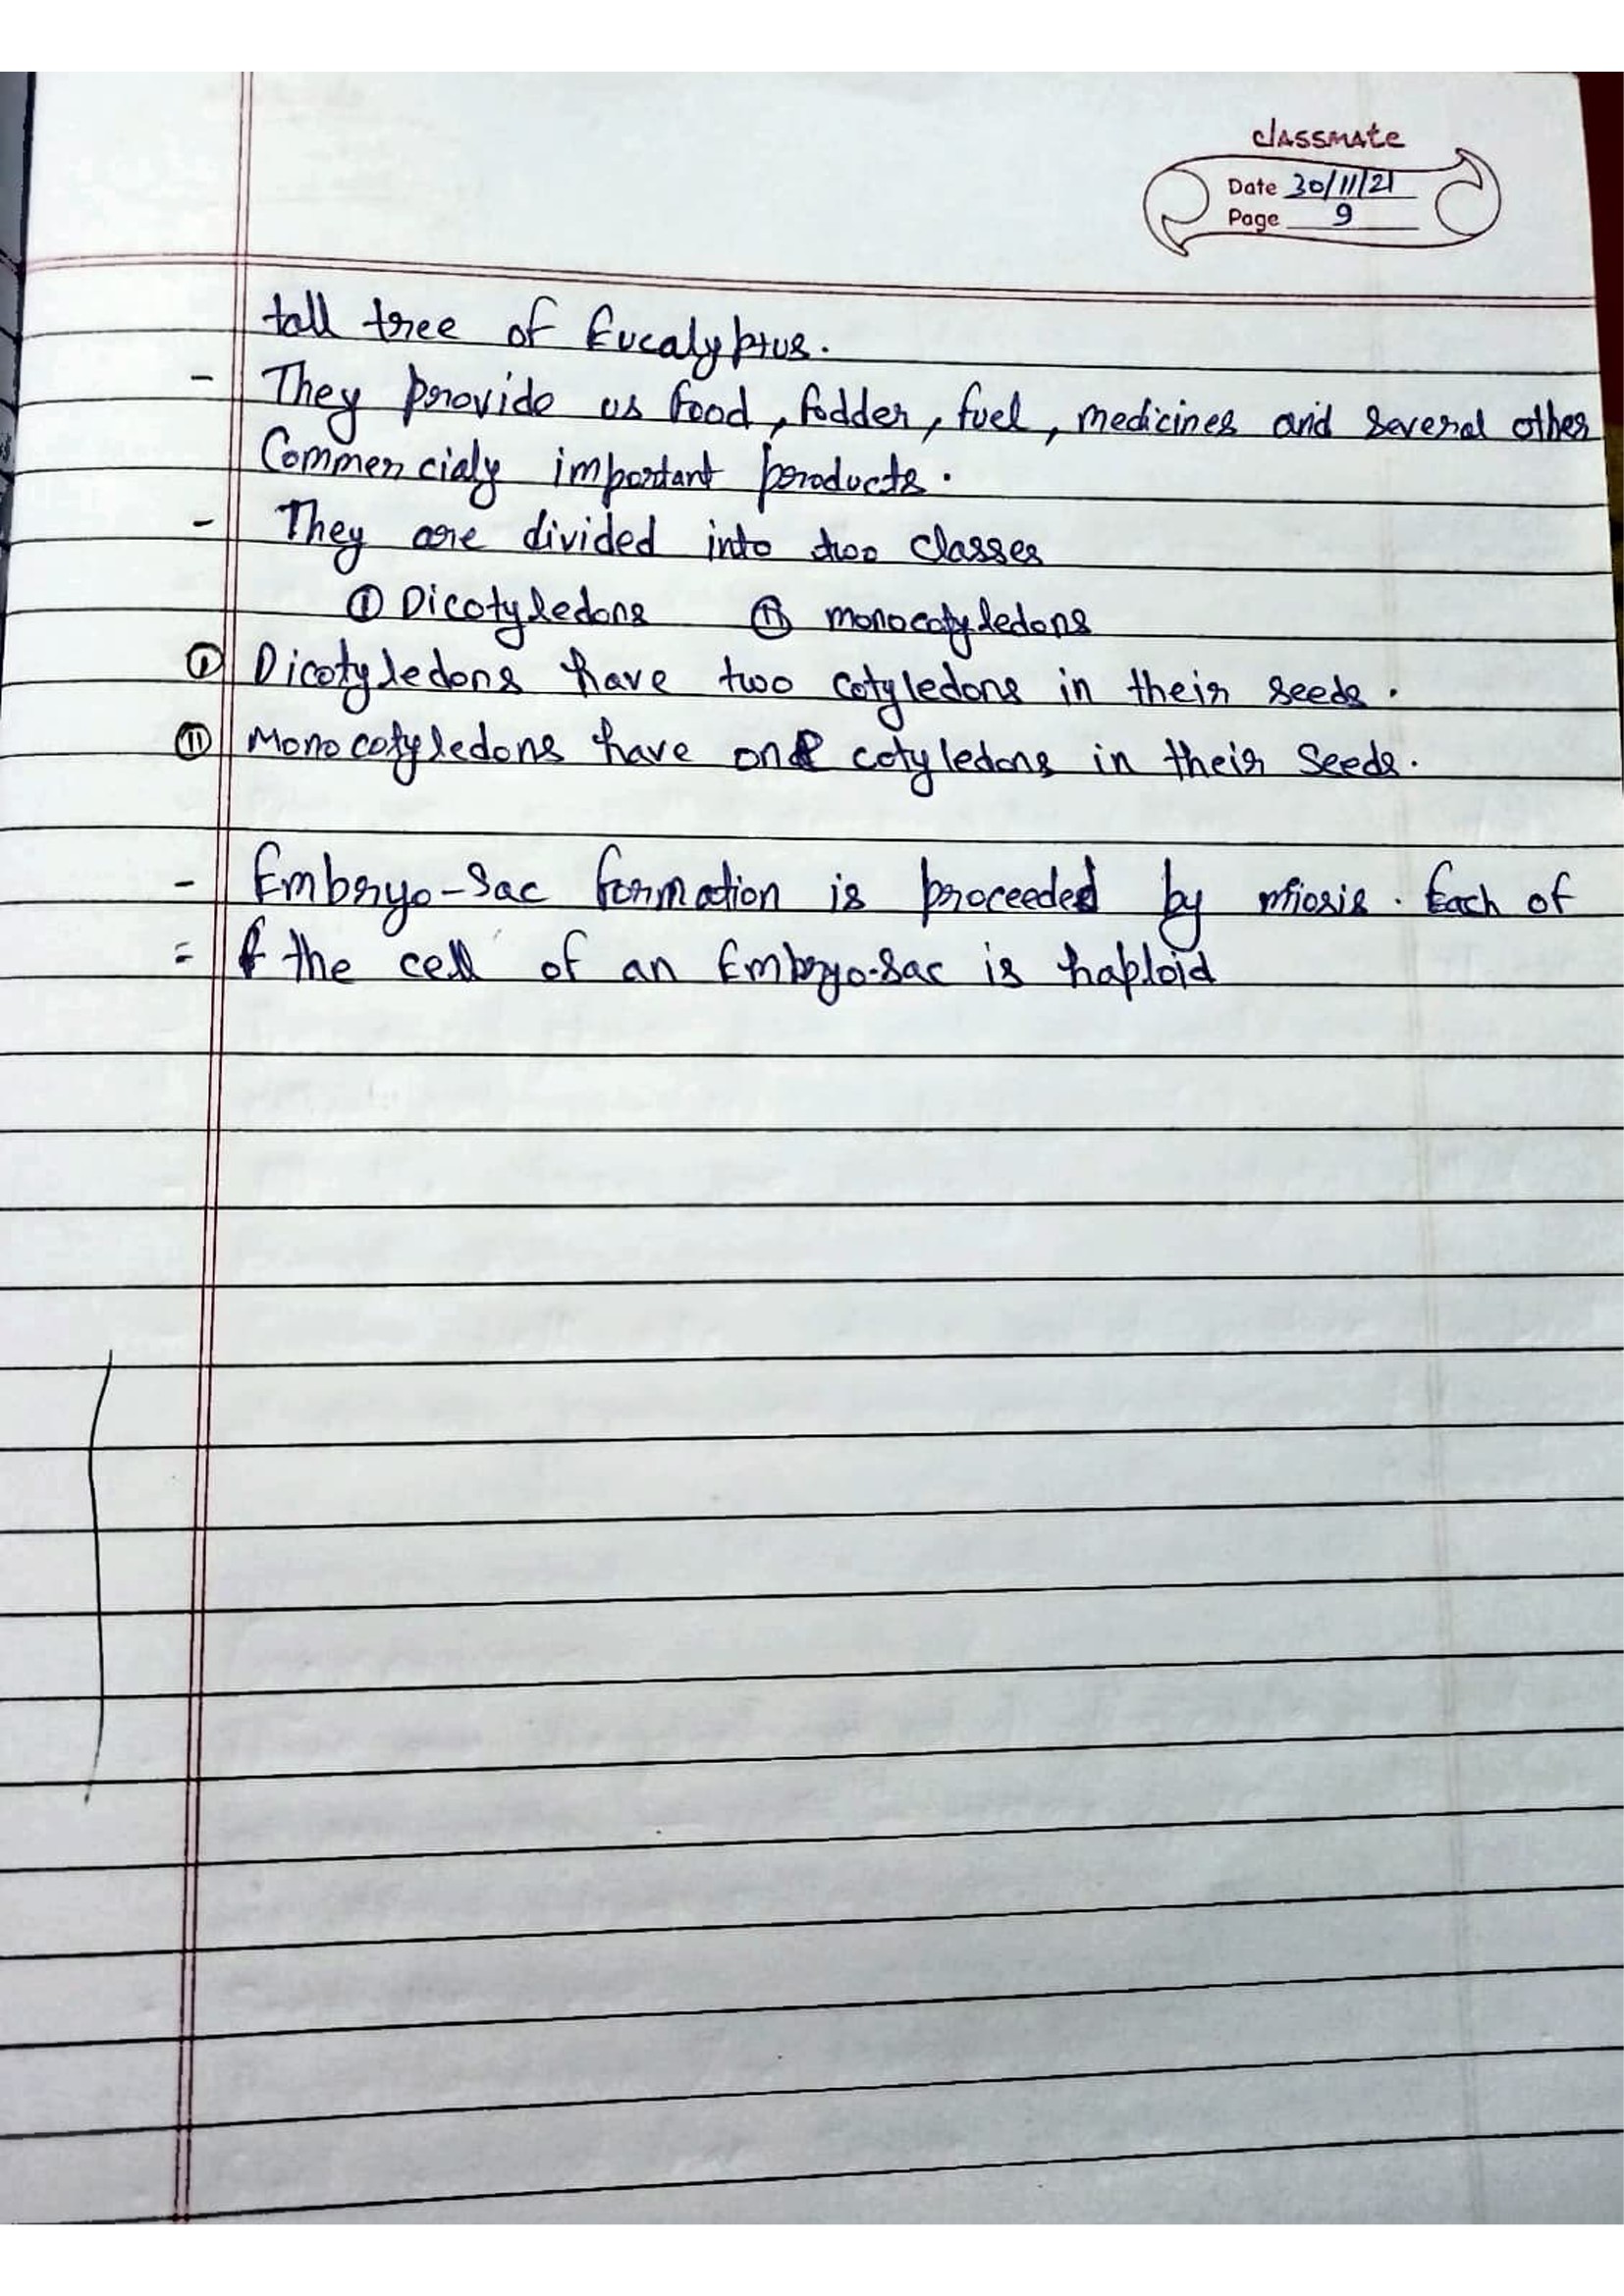 classmate
Date 30/11/21
Page 9
tall tree of Eucalyptus.
- They provide us food, fodder, fuel, medicines and several other
Commercialy important products.
- They are divided into two classes
① Dicotyledons ⑪ monocotyledons
① Dicotyledons have two cotyledons in their seeds.
⑪ Monocotyledons have one cotyledons in their seeds.
- Embryo-Sac formation is proceeded by miosis. Each of
= the cell of an Embryo-Sac is haploid